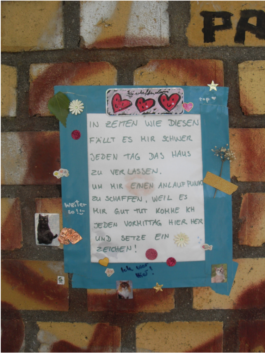 PA
IN ZEITEN WIE DIESEN
FÄLLT ES MIR SCHWER
JEDEN TAG DAS HAUS
ZU VERLASSEN.
UM MIR EINEN ANLAUFPUNKT
ZU SCHAFFEN, WEIL ES
MIR GUT TUT KOMME ICH
JEDEN VORMITTAG HIER HER
UND SETZE EIN
ZEICHEN!
weiter
so!!!
Ich war
hier!